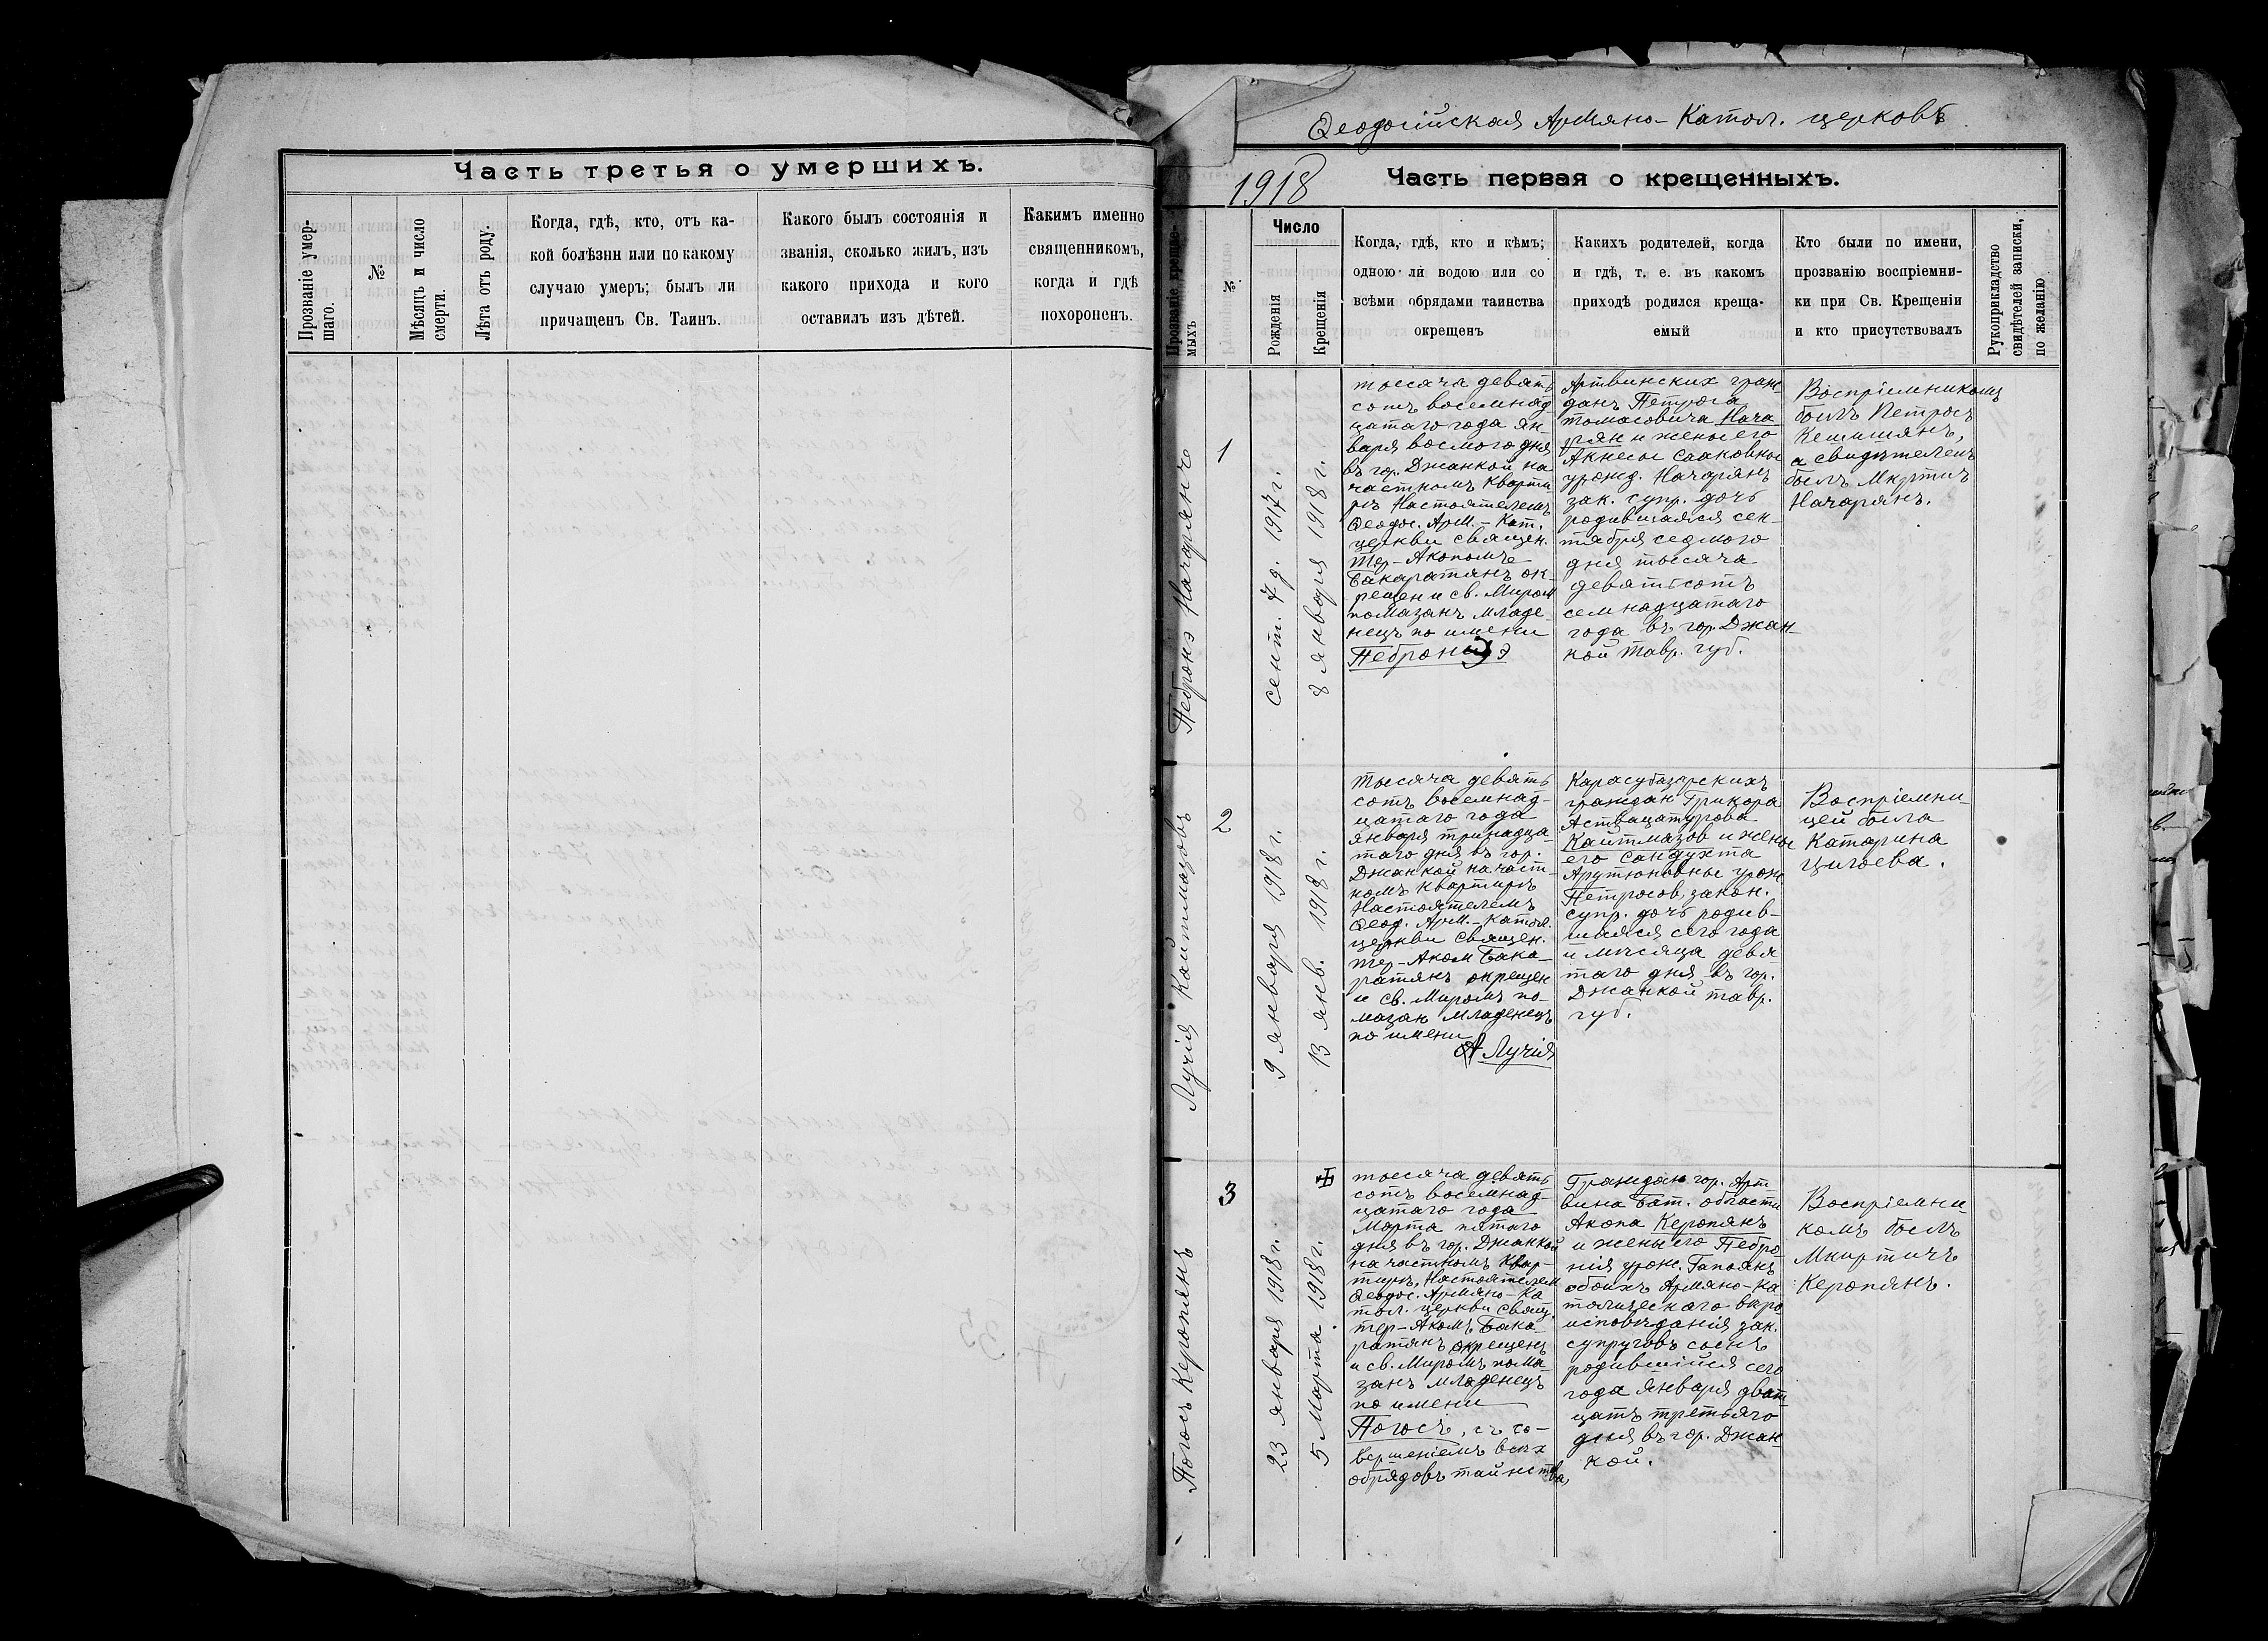 Часть третья о умершихъ.
Прозваніе умер-
шаго.
№
Мѣсяцъ и число
смерти.
Лѣта отъ роду.
Когда, гдѣ, кто, отъ ка-
кой болѣзни или по какому
случаю умеръ; былъ ли
причащенъ Св. Таинъ.
Какого былъ состоянія и
званія, сколько жилъ, изъ
какого прихода и кого
оставилъ изъ дѣтей.
Какимъ именно
священникомъ,
когда и гдѣ
похороненъ.
Ѳеодосійская Армяно-Катол. церковь
1918
Часть первая о крещенныхъ.
Прозваніе креще-
мыхъ
№
Число
Рожденія
Крещенія
Когда, гдѣ, кто и кѣмъ;
одною ли водою или со
всѣми обрядами таинства
окрещенъ
Какихъ родителей, когда
и гдѣ, т. е. въ какомъ
приходѣ родился креща-
емый
Кто были по имени,
прозванію воспріемни-
ки при Св. Крещеніи
и кто присутствовалъ
Рукоприкладство
свидѣтелей записки,
по желанію
Пебронэ Начарянъ
1
сент. 7 д. 1917 г.
8 января 1918 г.
тысяча девять
сотъ восемнад-
цатаго года ян-
варя восмого дня
въ гор. Джанкой на
частномъ кварти-
рѣ Настоятелемъ
Ѳеодос. Арм.-Кат.
церкви священ.
Тер-Акопомъ
Бакаратянъ ок-
рещен и св. Миром
помазанъ младе-
нецъ по имени
Пебронэ
Артвинских граж-
данъ Петроса
Томасовича Нача-
рян и жены его
Акнесы Сааковны
урожд. Начарянъ
зак. супр. дочь
родившаяся сен-
тября седмого
дня тысяча
девятьсотъ
семнадцатаго
года въ гор. Джан-
кой Тавр. губ.
Воспріемникомъ
былъ Петросъ
Кешишянъ,
а свидѣтелемъ
былъ Мкртичъ
Начарянъ.
Лучія Кайтмазовъ
2
9 января 1918 г.
13 янв. 1918 г.
тысяча девять
сотъ восемнад-
цатаго года
января тринадца-
таго дня въ гор.
Джанкой на част-
номъ квартирѣ
Настоятелемъ
Ѳеод. Арм.-Катол.
церкви священ.
Тер-Акоп Бака-
ратянъ окрещен
и св. Миромъ по-
мазан младенецъ
по имени
Лучія
Карасубазарскихъ
граждан Григора
Аствацатурова
Кайтмазов и жены
его Сандухта
Арутюновны урож.
Петросов, закон.
супр. дочь родив-
шаяся сего года
и мѣсяца девя-
таго дня въ гор.
Джанкой Тавр.
губ.
Воспріемни-
цей была
Катарина
Цигоева.
Погосъ Керопянъ
3
23 января 1918 г.
5 Марта 1918 г.
тысяча девять
сотъ восемнад-
цатаго года
Марта пятаго
дня въ гор. Джанкой
на частномъ квар-
тирѣ, Настоятелем
Ѳеодос. Армяно-Ка-
тол. церкви свящ.
Тер-Акопъ Бака-
ратянъ окрещенъ
и св. Миромъ пома-
занъ младенецъ
по имени
Погосъ, съ со-
вершеніемъ всѣх
обрядовъ таинства,
Граждан гор. Арт-
вина Бат. области
Акопа Керопянъ
и жены его Пебро-
нія урож. Гапоянъ
обоихъ Армяно-Ка-
толическаго вѣро
исповѣданія зак.
супруговъ сынъ
родившійся сего
года января двад-
цать третьяго
дня въ гор. Джан-
кой.
Воспріемни-
комъ былъ
Мкиртичъ
Керопянъ.